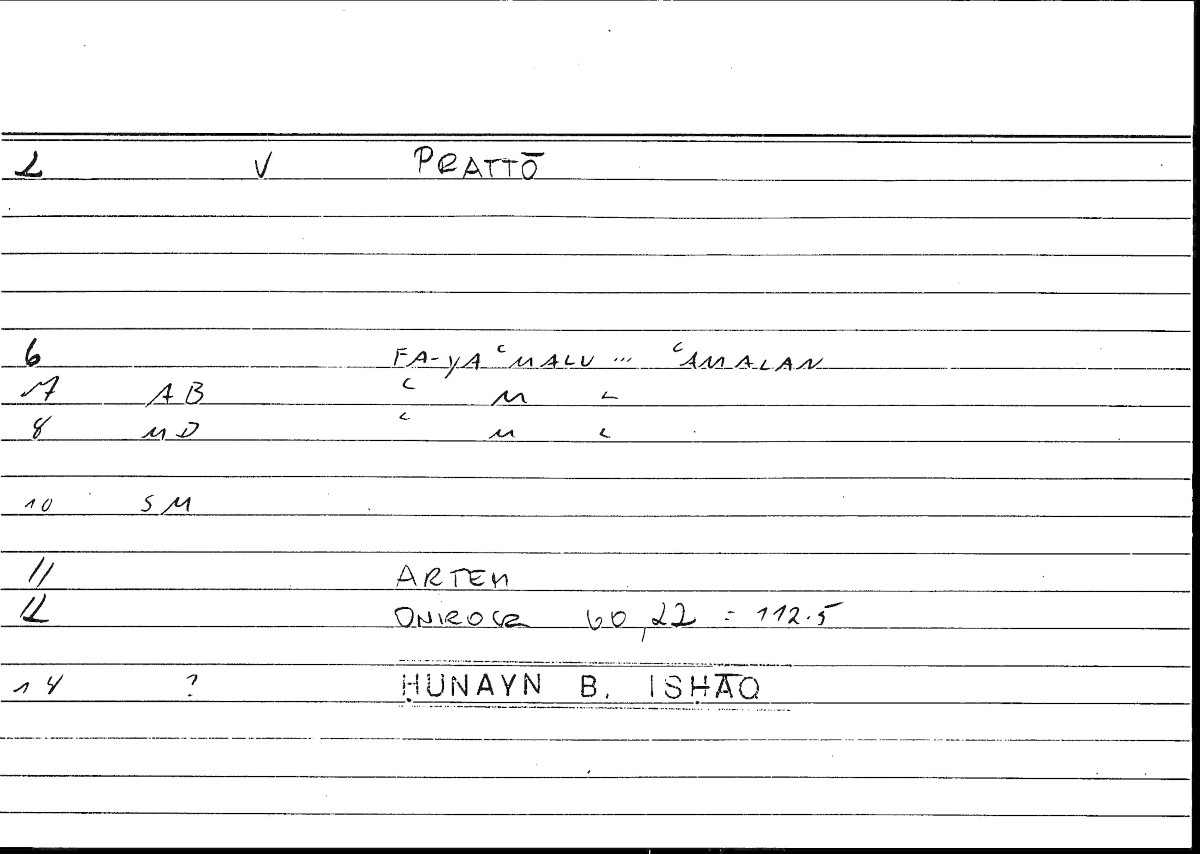 2 V PRATTŌ
6 FA-YAʿMALU ... ʿAMALAN
7 AB ʿ M L
8 MD ʿ M L
10 SM
11 ARTEM
12 ONIROCR 60,22 = 112.5
14 ? ḤUNAYN B. ISḤĀQ